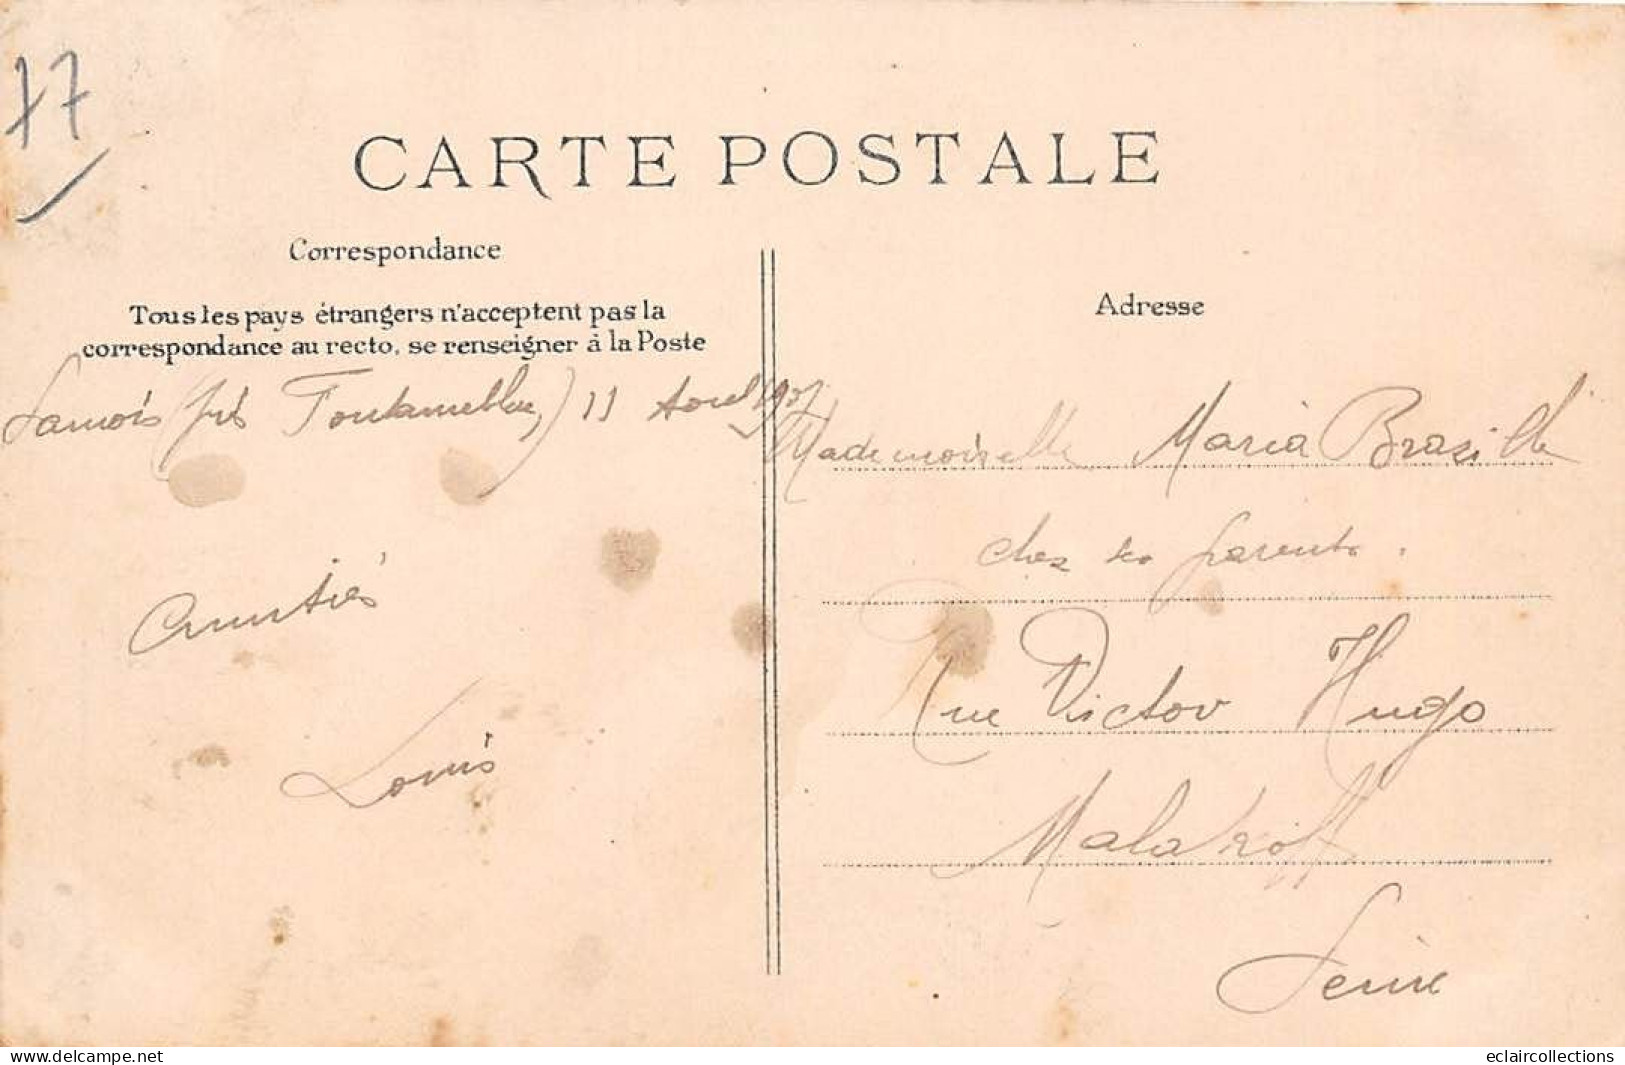 77
CARTE POSTALE
Correspondance
Tous les pays étrangers n'acceptent pas la
correspondance au recto, se renseigner à la Poste
Samois (près Fontainebleau) 11 Aout 1907
Amitiés
Louis
Adresse
Mademoiselle Maria
chez ses parents.
Rue Victor Hugo
Malakoff
Seine
www.delcampe.net
eclaircollections